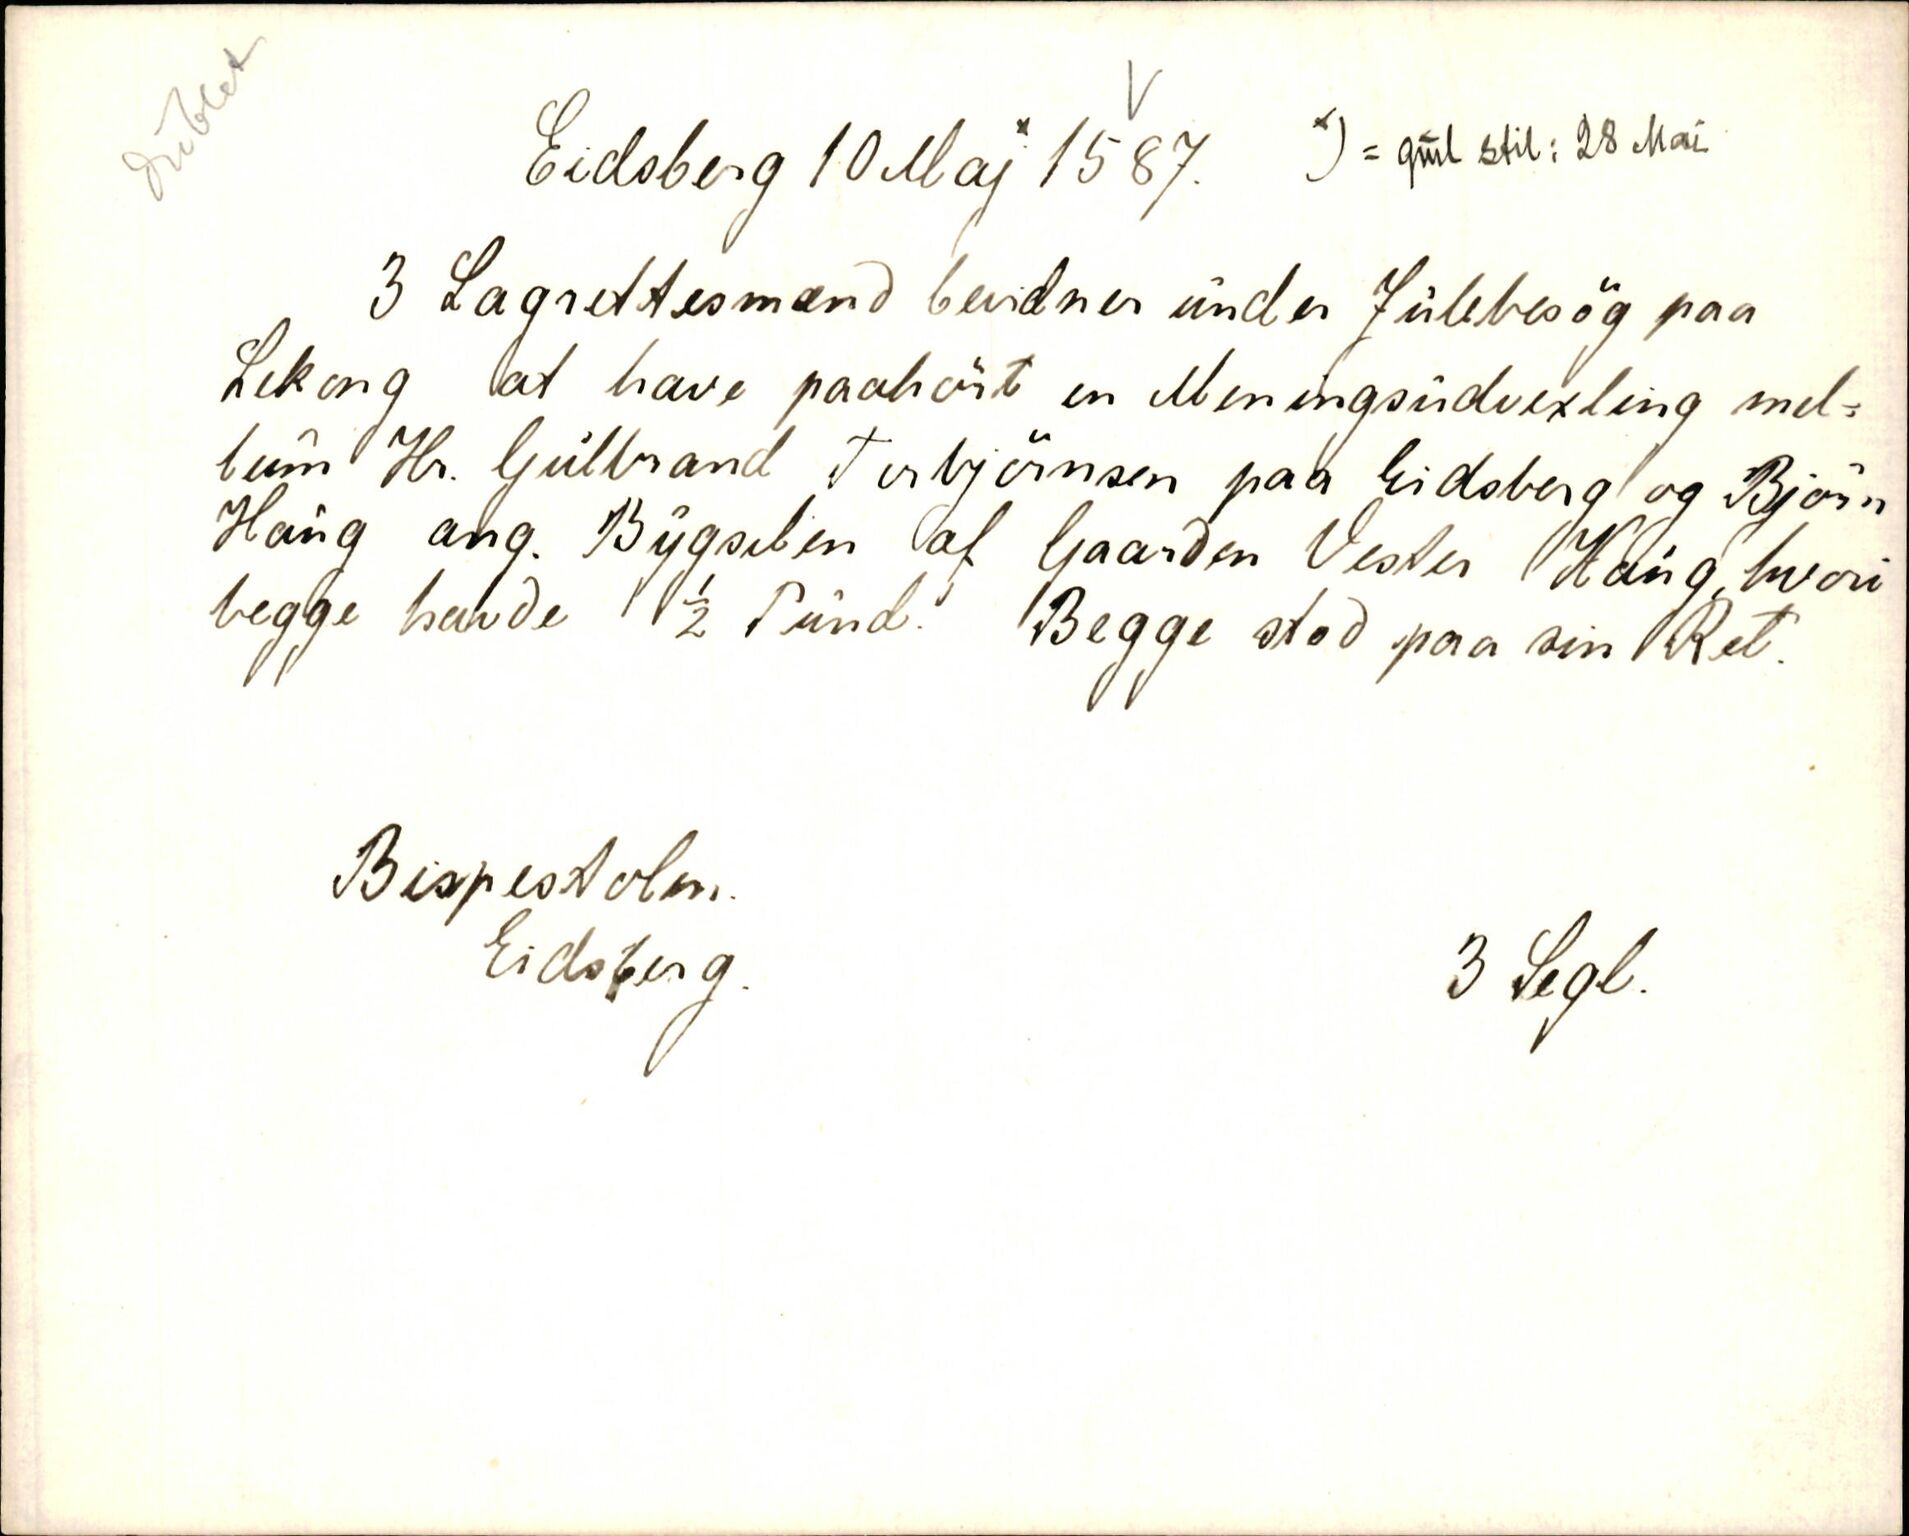 Dublet
Eidsberg 10 Maj x 1587. x) = gml stil: 28 Mai
3 Lagrettesmænd bevidner under Julebesög paa
Lekong at have paahört en Meningsudvexling mel=
lem Hr. Gulbrand Torbjörnsen paa Eidsberg og Björn
Haug ang. Bygselen af Gaarden Vester Haug, hvori
begge havde 1/2 Pund. Begge stod paa sin Ret.
Bispestolen.
Eidsberg.
3 Segl.